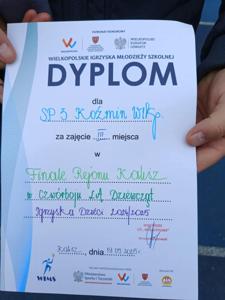 WIELKOPOLSKIE IGRZYSKA MŁODZIEŻY SZKOLNEJ
DYPLOM
dla
SP 3 Koźmin Wlkp.
za zajęcie III miejsca
w
Finale Rejonu Kalisz
w Czwórboju LA Dziewcząt
Igrzyska Dzieci 2024/2025
Kalisz, dnia 19.05.2025r.
WIMS